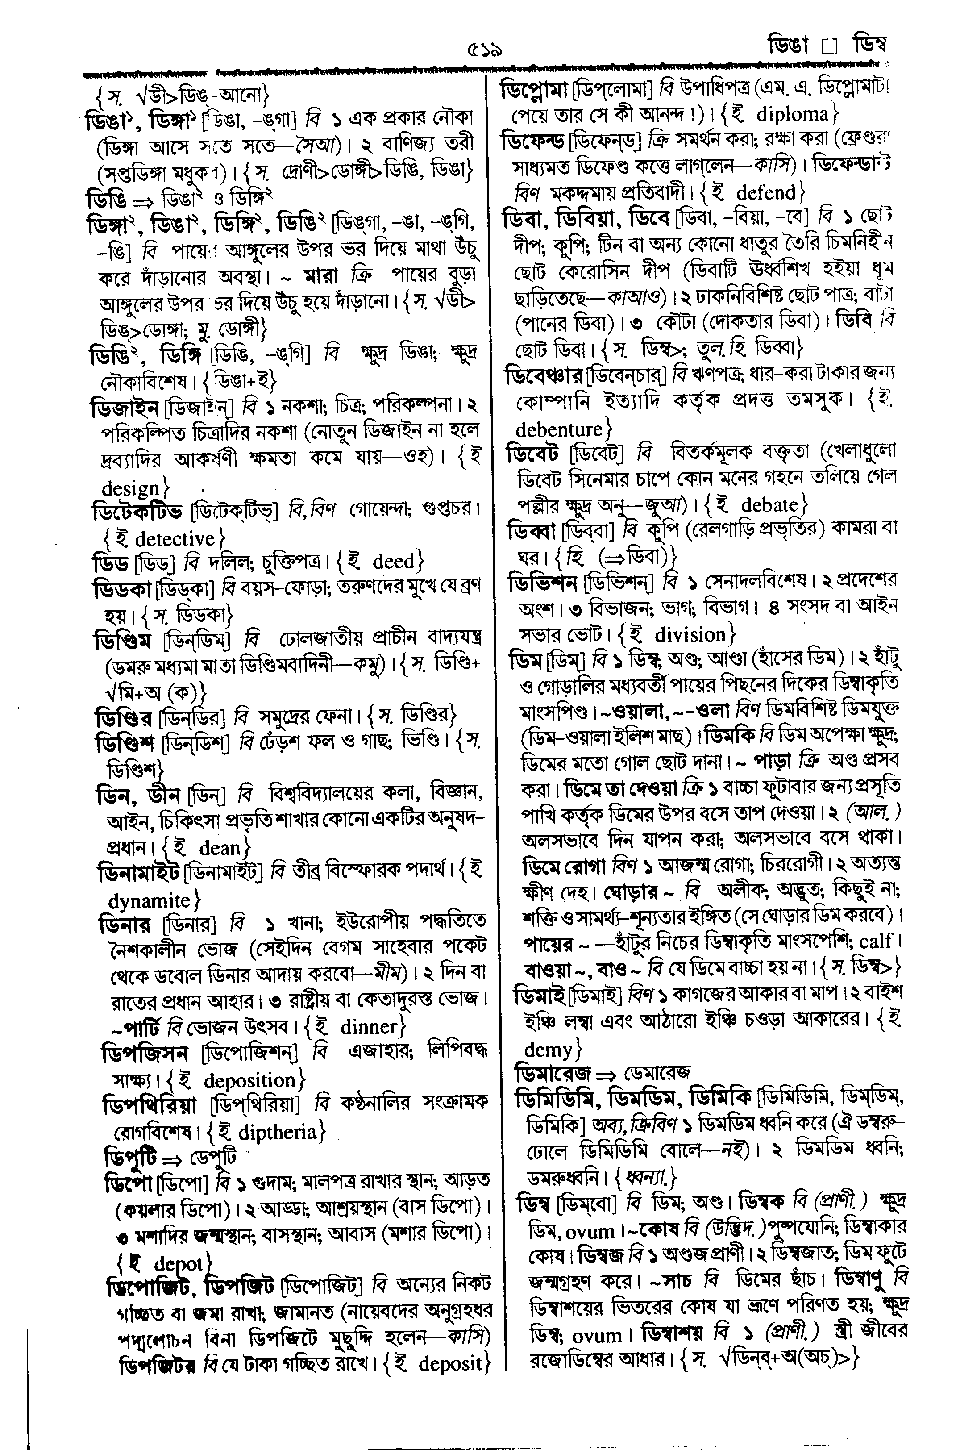 ৫১৯
ডিঙা □ ডিম্ব
{স. √ডী>ডিঙ্-আনো}
ডিঙা¹, ডিঙ্গা¹ [ডিঙা, -ঙ্গা] বি ১ এক প্রকার নৌকা
(ডিঙ্গা আসে সতে সতে—সৈআ)। ২ বাণিজ্য তরী
(সপ্তডিঙ্গা মধুকর)। {স. দ্রোণী>ডোঙ্গী>ডিঙি, ডিঙা}
ডিঙি ⇒ ডিঙা² ও ডিঙ্গি²
ডিঙ্গা², ডিঙা², ডিঙ্গি², ডিঙি² [ডিঙ্গা, -ঙা, -ঙ্গি,
-ঙি] বি পায়ের আঙ্গুলের উপর ভর দিয়ে মাথা উঁচু
করে দাঁড়ানোর অবস্থা। ~ মারা ক্রি পায়ের বুড়া
আঙ্গুলের উপর ভর দিয়ে উঁচু হয়ে দাঁড়ানো। {স. √ডী>
ডিঙ>ডোঙ্গা; মু. ডোঙ্গী}
ডিঙি², ডিঙ্গি [ডিঙি, -ঙ্গি] বি ক্ষুদ্র ডিঙা; ক্ষুদ্র
নৌকাবিশেষ। {ডিঙা+ই}
ডিজাইন [ডিজাইন্] বি ১ নকশা; চিত্র; পরিকল্পনা। ২
পরিকল্পিত চিত্রাদির নকশা (নোতুন ডিজাইন না হলে
দ্রব্যাদির আকর্ষণী ক্ষমতা কমে যায়—ওহ)। {ই
design}
ডিটেকটিভ [ডিটেক্‌টিভ্] বি, বিণ গোয়েন্দা; গুপ্তচর।
{ই detective}
ডিড [ডিড্] বি দলিল; চুক্তিপত্র। {ই deed}
ডিডকা [ডিড্‌কা] বি বয়স-ফোড়া; তরুণদের মুখে যে ব্রণ
হয়। {স. ডিডকা}
ডিণ্ডিম [ডিন্‌ডিম্] বি ঢোলজাতীয় প্রাচীন বাদ্যযন্ত্র
(ডমরু মধ্যমা মাতা ডিণ্ডিমবাদিনী—কমু)। {স. ডিণ্ডি+
√মি+অ (ক)}
ডিণ্ডির [ডিন্‌ডির্] বি সমুদ্রের ফেনা। {স. ডিণ্ডির}
ডিণ্ডিশ [ডিন্‌ডিশ্] বি ঢেঁড়শ ফল ও গাছ; ভিণ্ডি। {স.
ডিণ্ডিশ}
ডিন, ডীন [ডিন্] বি বিশ্ববিদ্যালয়ের কলা, বিজ্ঞান,
আইন, চিকিৎসা প্রভৃতি শাখার কোনো একটির অনুষদ-
প্রধান। {ই dean}
ডিনামাইট [ডিনামাইট্] বি তীব্র বিস্ফোরক পদার্থ। {ই
dynamite}
ডিনার [ডিনার্] বি ১ খানা; ইউরোপীয় পদ্ধতিতে
নৈশকালীন ভোজ (সেইদিন বেগম সাহেবার পকেট
থেকে ডবোল ডিনার আদায় করবো—মীম)। ২ দিন বা
রাতের প্রধান আহার। ৩ রাষ্ট্রীয় বা কেতাদুরস্ত ভোজ।
~পার্টি বি ভোজন উৎসব। {ই dinner}
ডিপজিসন [ডিপোজিশন্] বি এজাহার; লিপিবদ্ধ
সাক্ষ্য। {ই deposition}
ডিপথিরিয়া [ডিপ্‌থিরিয়া] বি কণ্ঠনালির সংক্রামক
রোগবিশেষ। {ই diptheria}
ডিপুটি ⇒ ডেপুটি
ডিপো [ডিপো] বি ১ গুদাম; মালপত্র রাখার স্থান; আড়ত
(কয়লার ডিপো)। ২ আড্ডা; আশ্রয়স্থান (বাস ডিপো)।
৩ মশাদির জন্মস্থান; বাসস্থান; আবাস (মশার ডিপো)।
{ই depot}
ডিপোজিট, ডিপজিট [ডিপোজিট্] বি অন্যের নিকট
গচ্ছিত বা জমা রাখা; জামানত (নায়েবদের অনুগ্রহধর
পদ্মলোচন বিনা ডিপজিটে মুছুদ্দি হলেন—কাসি)
ডিপজিটর বি যে টাকা গচ্ছিত রাখে। {ই deposit}
ডিপ্লোমা [ডিপ্‌লোমা] বি উপাধিপত্র (এম. এ. ডিপ্লোমাটা
পেয়ে তার সে কী আনন্দ !)। {ই diploma}
ডিফেন্ড [ডিফেন্‌ড্] ক্রি সমর্থন করা; রক্ষা করা (ফ্রেণ্ডরা
সাধ্যমত ডিফেণ্ড কত্তে লাগ্‌লেন—কাসি)। ডিফেন্ডান্ট
বিণ মকদ্দমায় প্রতিবাদী। {ই defend}
ডিবা, ডিবিয়া, ডিবে [ডিবা, -বিয়া, -বে] বি ১ ছোট
দীপ; কূপি; টিন বা অন্য কোনো ধাতুর তৈরি চিমনিহীন
ছোট কেরোসিন দীপ (ডিবাটি ঊর্ধ্বশিখ হইয়া ধূম
ছাড়িতেছে—কাআও)। ২ ঢাকনিবিশিষ্ট ছোট পাত্র; বাটা
(পানের ডিবা)। ৩ কৌটা (দোকতার ডিবা)। ডিবি বি
ছোট ডিবা। {স. ডিম্ব>; তুল. হি. ডিব্বা}
ডিবেঞ্চার [ডিবেন্‌চার্] বি ঋণপত্র; ধার-করা টাকার জন্য
কোম্পানি ইত্যাদি কর্তৃক প্রদত্ত তমসুক। {ই.
debenture}
ডিবেট [ডিবেট্] বি বিতর্কমূলক বক্তৃতা (খেলাধুলো
ডিবেট সিনেমার চাপে কোন মনের গহনে তলিয়ে গেল
পল্লীর ক্ষুদ্র অনু—জুআ)। {ই debate}
ডিব্বা [ডিব্‌বা] বি কূপি (রেলগাড়ি প্রভৃতির) কামরা বা
ঘর। {হি (⇒ডিবা)}
ডিভিশন [ডিভিশন্] বি ১ সেনাদলবিশেষ। ২ প্রদেশের
অংশ। ৩ বিভাজন; ভাগ; বিভাগ। ৪ সংসদ বা আইন
সভার ভোট। {ই division}
ডিম [ডিম্] বি ১ ডিম্ব; অণ্ড; আণ্ডা (হাঁসের ডিম)। ২ হাঁটু
ও গোড়ালির মধ্যবর্তী পায়ের পিছনের দিকের ডিম্বাকৃতি
মাংসপিণ্ড। ~ওয়ালা, ~-ওলা বিণ ডিমবিশিষ্ট ডিমযুক্ত
(ডিম-ওয়ালা ইলিশ মাছ)। ডিমকি বি ডিম অপেক্ষা ক্ষুদ্র;
ডিমের মতো গোল ছোট দানা। ~ পাড়া ক্রি অণ্ড প্রসব
করা। ডিমে তা দেওয়া ক্রি ১ বাচ্চা ফুটাবার জন্য প্রসূতি
পাখি কর্তৃক ডিমের উপর বসে তাপ দেওয়া। ২ (আল.)
অলসভাবে দিন যাপন করা; অলসভাবে বসে থাকা।
ডিমে রোগা বিণ ১ আজন্ম রোগা; চিররোগী। ২ অত্যন্ত
ক্ষীণ দেহ। ঘোড়ার ~ বি অলীক; অদ্ভুত; কিছুই না;
শক্তি ও সামর্থ্য-শূন্যতার ইঙ্গিত (সে ঘোড়ার ডিম করবে)।
পায়ের ~ —হাঁটুর নিচের ডিম্বাকৃতি মাংসপেশি; calf।
বাওয়া ~, বাও ~ বি যে ডিমে বাচ্চা হয় না। {স. ডিম্ব>}
ডিমাই [ডিমাই] বিণ ১ কাগজের আকার বা মাপ। ২ বাইশ
ইঞ্চি লম্বা এবং আঠারো ইঞ্চি চওড়া আকারের। {ই
demy}
ডিমারেজ ⇒ ডেমারেজ
ডিমিডিমি, ডিমডিম, ডিমিকি [ডিমিডিমি, ডিম্‌ডিম্,
ডিমিকি] অব্য, ক্রিবিণ ১ ডিমডিম ধ্বনি করে (ঐ ডম্বরু-
ঢোলে ডিমিডিমি বোলে—নই)। ২ ডিমডিম ধ্বনি;
ডমরুধ্বনি। {ধ্বন্যা.}
ডিম্ব [ডিম্‌বো] বি ডিম; অণ্ড। ডিম্বক বি (প্রাণী.) ক্ষুদ্র
ডিম, ovum। ~কোষ বি (উদ্ভিদ.) পুষ্পযোনি; ডিম্বাকার
কোষ। ডিম্বজ বি ১ অণ্ডজ প্রাণী। ২ ডিম্বজাত; ডিম ফুটে
জন্মগ্রহণ করে। ~সাচ বি ডিমের ছাঁচ। ডিম্বাণু বি
ডিম্বাশয়ের ভিতরের কোষ যা ভ্রূণে পরিণত হয়; ক্ষুদ্র
ডিম্ব; ovum। ডিম্বাশয় বি ১ (প্রাণী.) স্ত্রী জীবের
রজোডিম্বের আধার। {স. √ডিন্‌ব্+অ(অচ্)>}